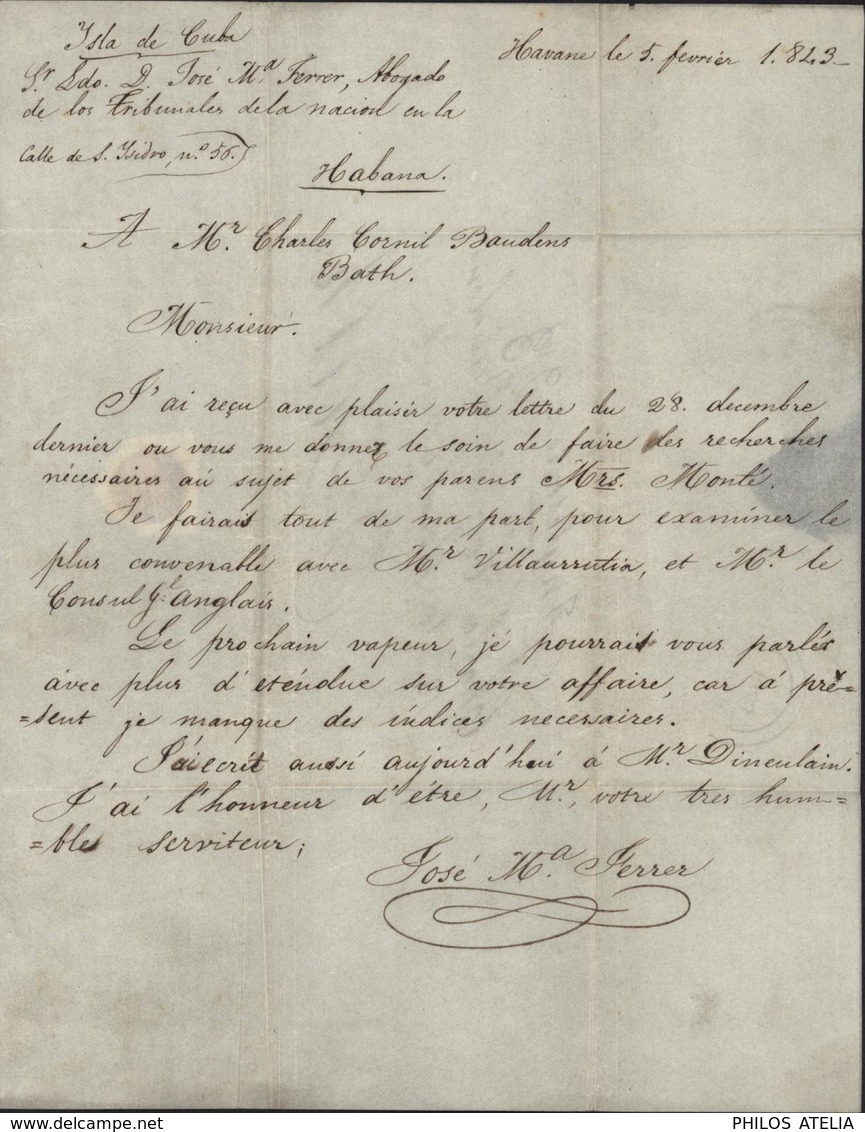 Isla de Cuba
Havane le 5. fevrier 1.843_
Sr. Ldo. D. José Ma. Ferrer, Abogado
de los tribunales de la nacion en la
Calle de S. Ysidro, n.o 56.
Habana.
A Mr. Charles Cornil Baudens
Bath.
Monsieur.
J'ai reçu avec plaisir votre lettre du 28. decembre
dernier ou vous me donnez le soin de faire des recherches
nécessaires aú sujet de vos parens Mrs. Monté.
Je fairais tout de ma part, pour examiner le
plus convenable avec Mr. Villaurrutia, et Mr. le
Consul Gl. anglais.
Le prochain vapeur, jé pourrais vous parlér
ávec plus d'eténdue sur votre affaire, car á pré=
=sent je manque des índices necessaires.
J'ai ecrit aussi aujourd'hui á Mr. Dineulain.
J'ai l'honneur d'étre, Mr., votre tres hum=
=ble serviteur;
José Ma. Ferrer
PHILOS ATELIA